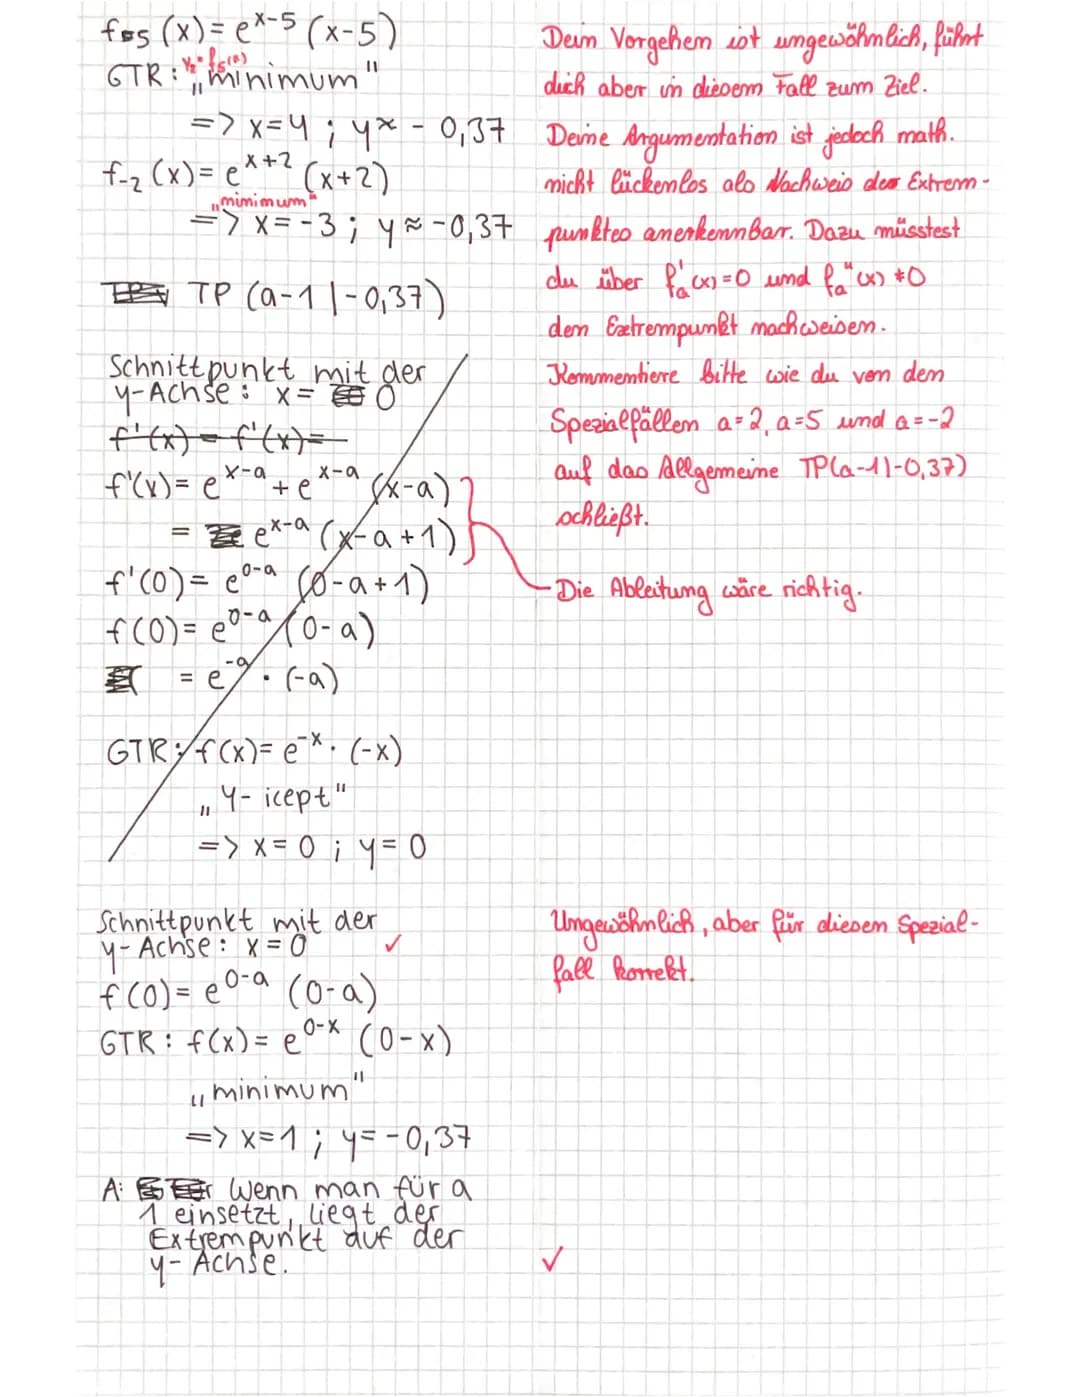 f₅(x) = e^{x-5} (x-5)
GTR: Y₂ = f₅(x) „minimum"
=> x=4 ; y≈ - 0,37
f₋₂(x) = e^{x+2} (x+2)
„minimum"
=> x = -3 ; y ≈ -0,37
TP (a-1 | -0,37)
Schnittpunkt mit der
y-Achse: x = 0
f'(x) = f'(x) =
f'(x) = e^{x-a} + e^{x-a} (x-a)
= e^{x-a} (x-a+1)
f'(0) = e^{0-a} (0-a+1)
f(0) = e^{0-a} (0-a)
= e^{-a} · (-a)
GTR: f(x) = e^{-x} · (-x)
„Y-icept"
=> x = 0 ; y = 0
Schnittpunkt mit der
y-Achse: x = 0 ✓
f(0) = e^{0-a} (0-a)
GTR: f(x) = e^{0-x} (0-x)
„minimum"
=> x=1 ; y = -0,37
A: Wenn man für a
1 einsetzt, liegt der
Extrempunkt auf der
y-Achse. ✓
Dein Vorgehen ist ungewöhnlich, führt
dich aber in diesem Fall zum Ziel.
Deine Argumentation ist jedoch math.
nicht lückenlos als Nachweis des Extrem-
punktes anerkennbar. Dazu müsstest
du über fₐ'(x) = 0 und fₐ''(x) ≠ 0
den Extrempunkt nachweisen.
Kommentiere bitte wie du von den
Spezialfällen a=2, a=5 und a=-2
auf das Allgemeine TP(a-1|-0,37)
schließt.
Die Ableitung wäre richtig.
Ungewöhnlich, aber für diesen Spezial-
fall korrekt.